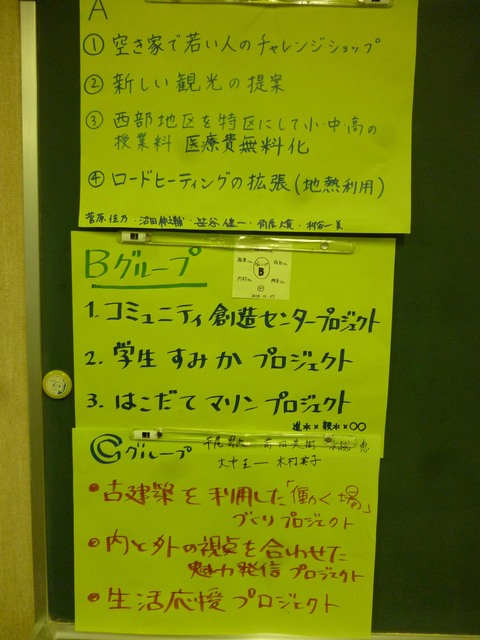 A
① 空き家で若い人のチャレンジショップ
② 新しい観光の提案
③ 西部地区を特区にして小・中・高の
授業料 医療費無料化
④ ロードヒーティングの拡張(地熱利用)
Bグループ
B
1. コミュニティ創造センタープロジェクト
2. 学生すみかプロジェクト
3. はこだてマリンプロジェクト
進水×親水×〇〇
Cグループ
・古建築を利用した「働く場」
づくりプロジェクト
・内と外の視点を合わせた
魅力発信プロジェクト
・生活応援プロジェクト